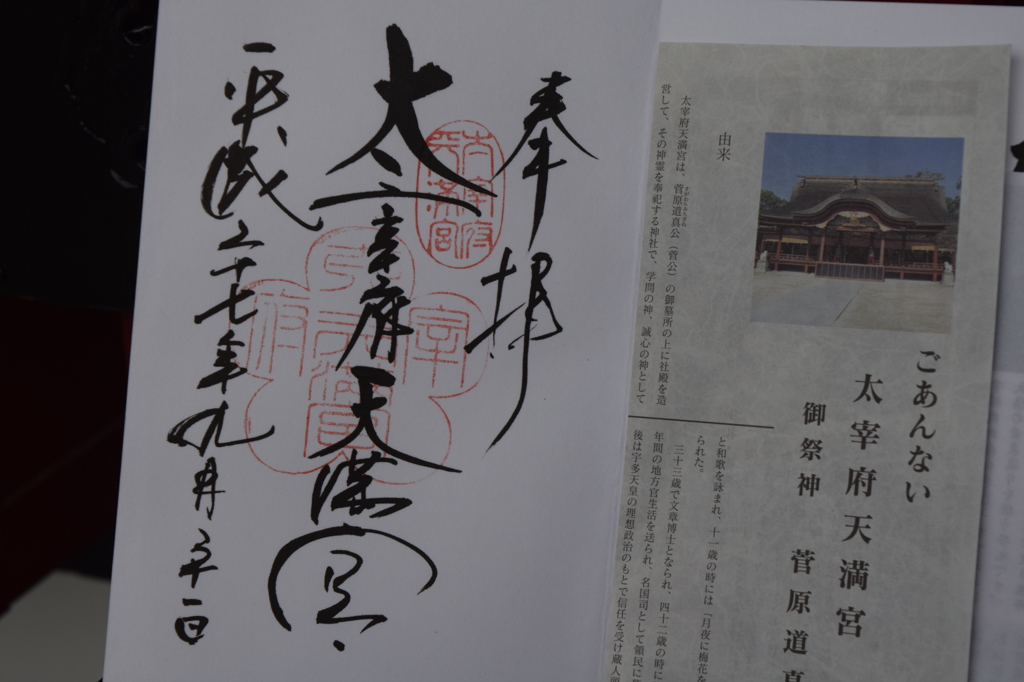 奉拝
太宰府天満宮
平成二十七年九月二十一日
太宰府天満宮
ごあんない
太宰府天満宮
御祭神 菅原道真
由来
太宰府天満宮は、菅原道真公(菅公)の御墓所の上に社殿を造
営して、その神霊を奉祀する神社で、学問の神、誠心の神として
と和歌を詠まれ、十一歳の時には「月夜に梅花を
られた。
三十三歳で文章博士となられ、四十二歳の時に
年間の地方官生活を送られ、名国司として領民に
後は宇多天皇の理想政治のもとで信任を受け蔵人